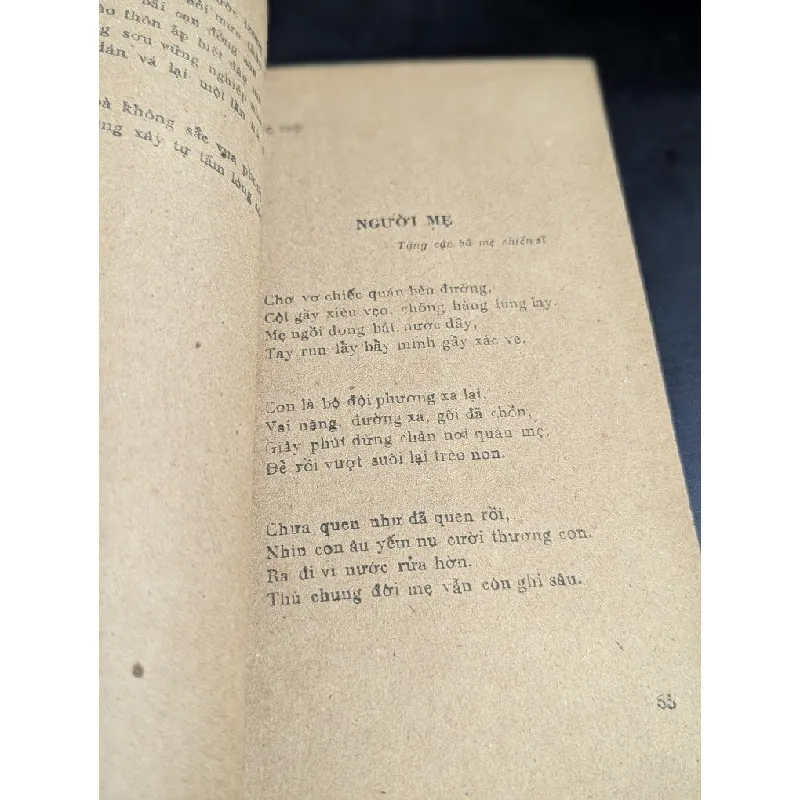 không sắc qua
xây tự tấm lòng
NGƯỜI MẸ
Tặng các bà mẹ chiến sĩ
Chơ vơ chiếc quán bên đường,
Cột gầy xiêu vẹo, chõng hàng lung lay.
Mẹ ngồi đong bát nước đầy,
Tay run lẩy bẩy mình gầy xác ve.
Con là bộ đội phương xa lại,
Vai nặng, đường xa, gối đã chồn,
Giây phút dừng chân nơi quán mẹ,
Để rồi vượt suối lại trèo non.
Chưa quen như đã quen rồi,
Nhìn con âu yếm nụ cười thương con.
Ra đi vì nước rửa hờn.
Thù chung đời mẹ vẫn còn ghi sâu.
55